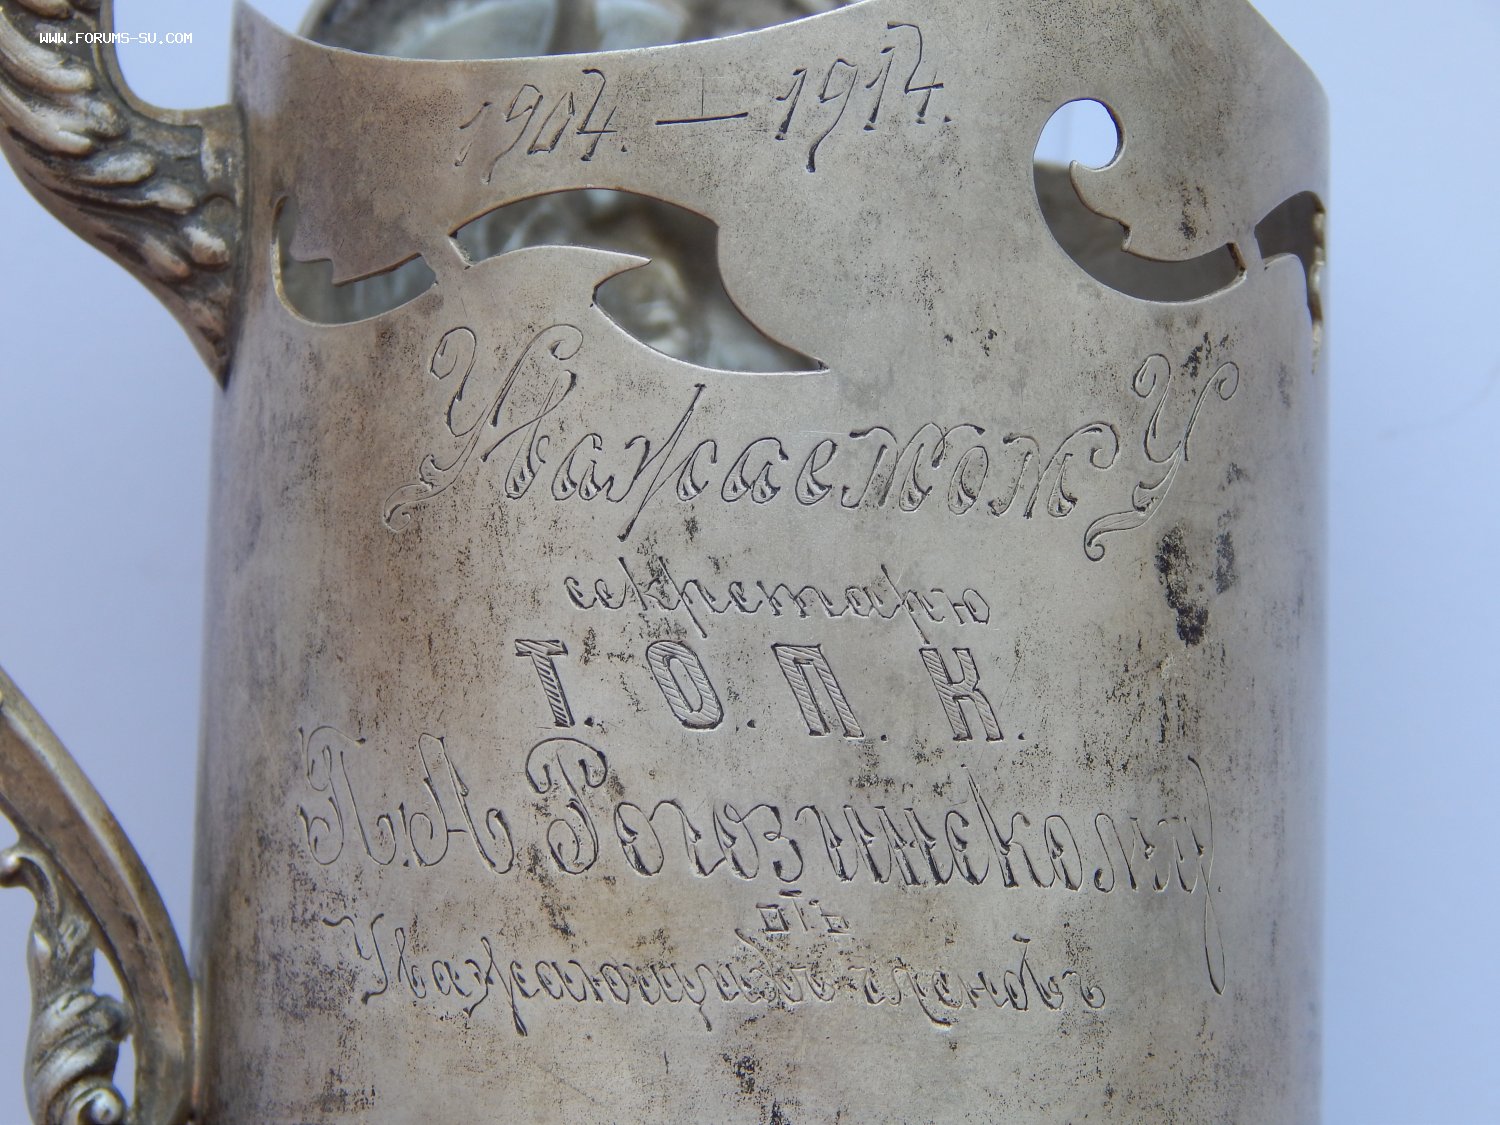 WWW.FORUMS-SU.COM
1904. — 1914.
УважаемомУ
секретарю
Т. О. П. К.
П. А. Рогозинскому.
отъ
Уважающихъ членовъ